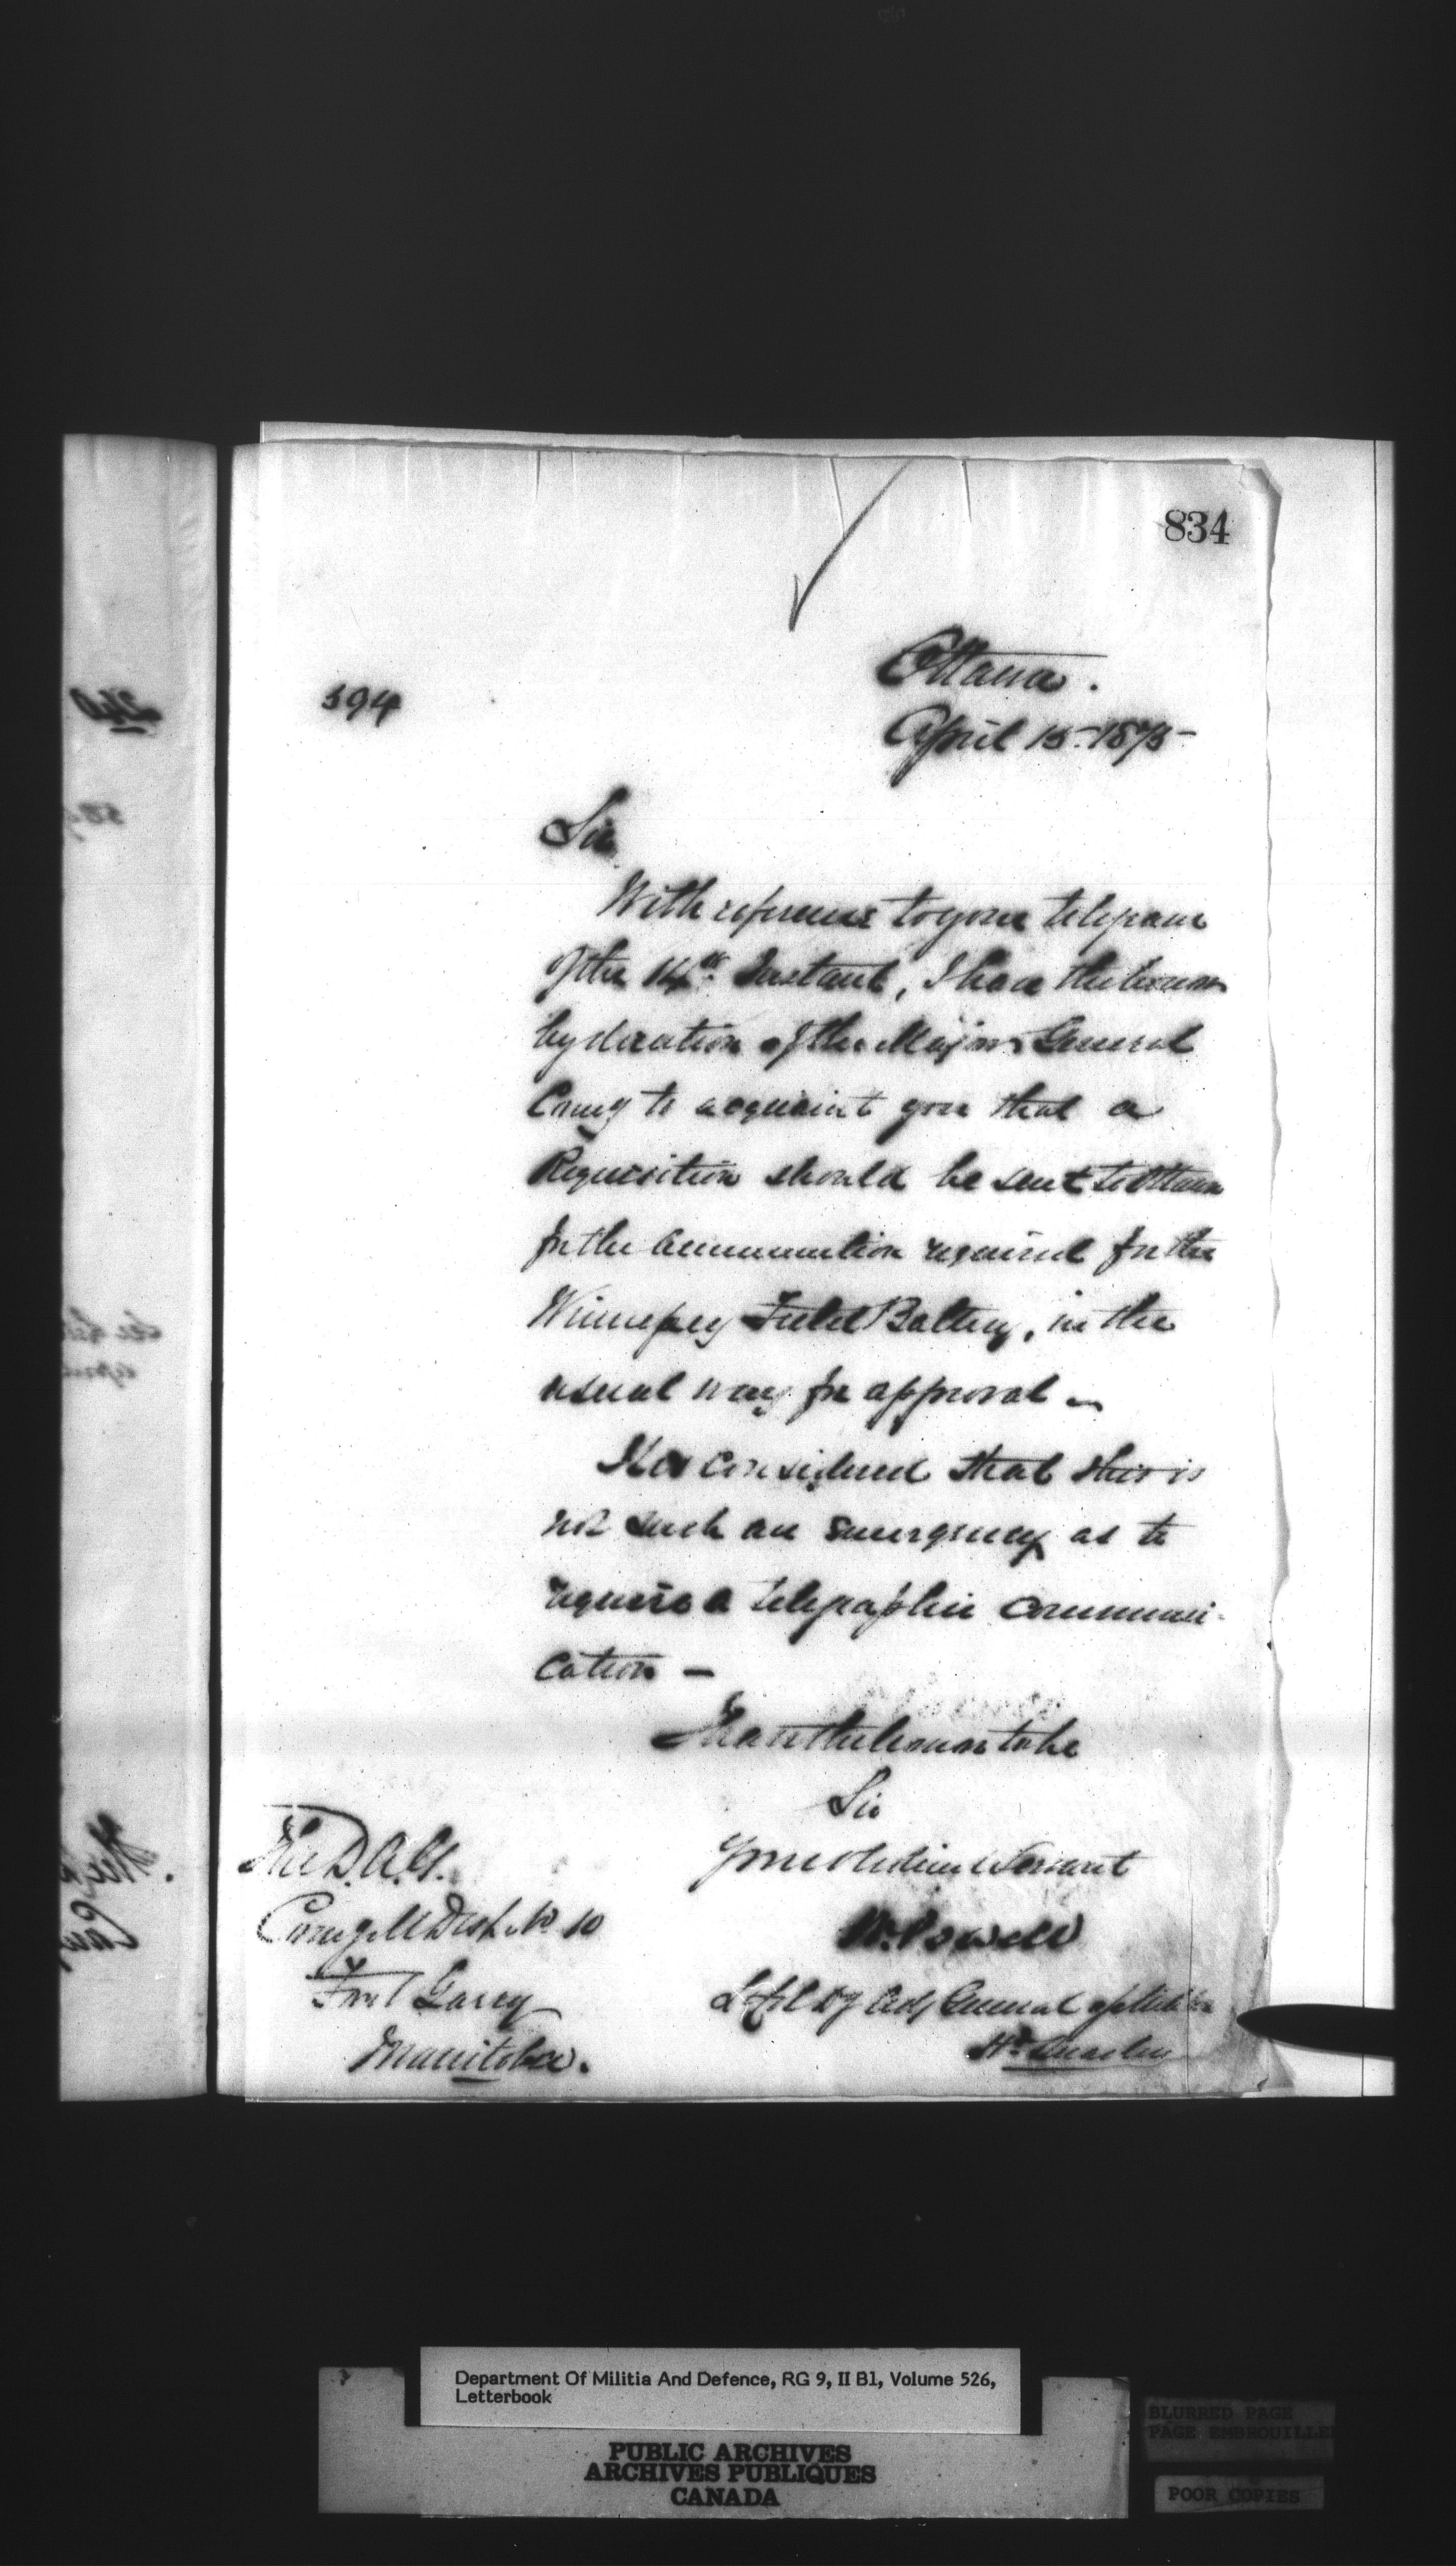 834
Ottawa.
594
April 15. 1875-
Sir
With reference to your telegram
of the 14th Instant, I have the honor
by direction of the Major General
Comg to acquaint you that a
Requisition should be sent to Ottawa
for the Ammunition required for the
Winnipeg Field Battery, in the
usual way for approval -
It is considered that this is
not such an emergency as to
require a telegraphic communi-
cation -
I have the honor to be
Sir
Your obedient Servant
W. Powell
Lt Col Dy Adj General of Militia
Hd Quarters
The D.A.G.
Comg M Dist. No 10
Fort Garry
Manitoba.
Department Of Militia And Defence, RG 9, II B1, Volume 526,
Letterbook
PUBLIC ARCHIVES
ARCHIVES PUBLIQUES
CANADA
BLURRED PAGE
PAGE EMBROUILLE
POOR COPIES